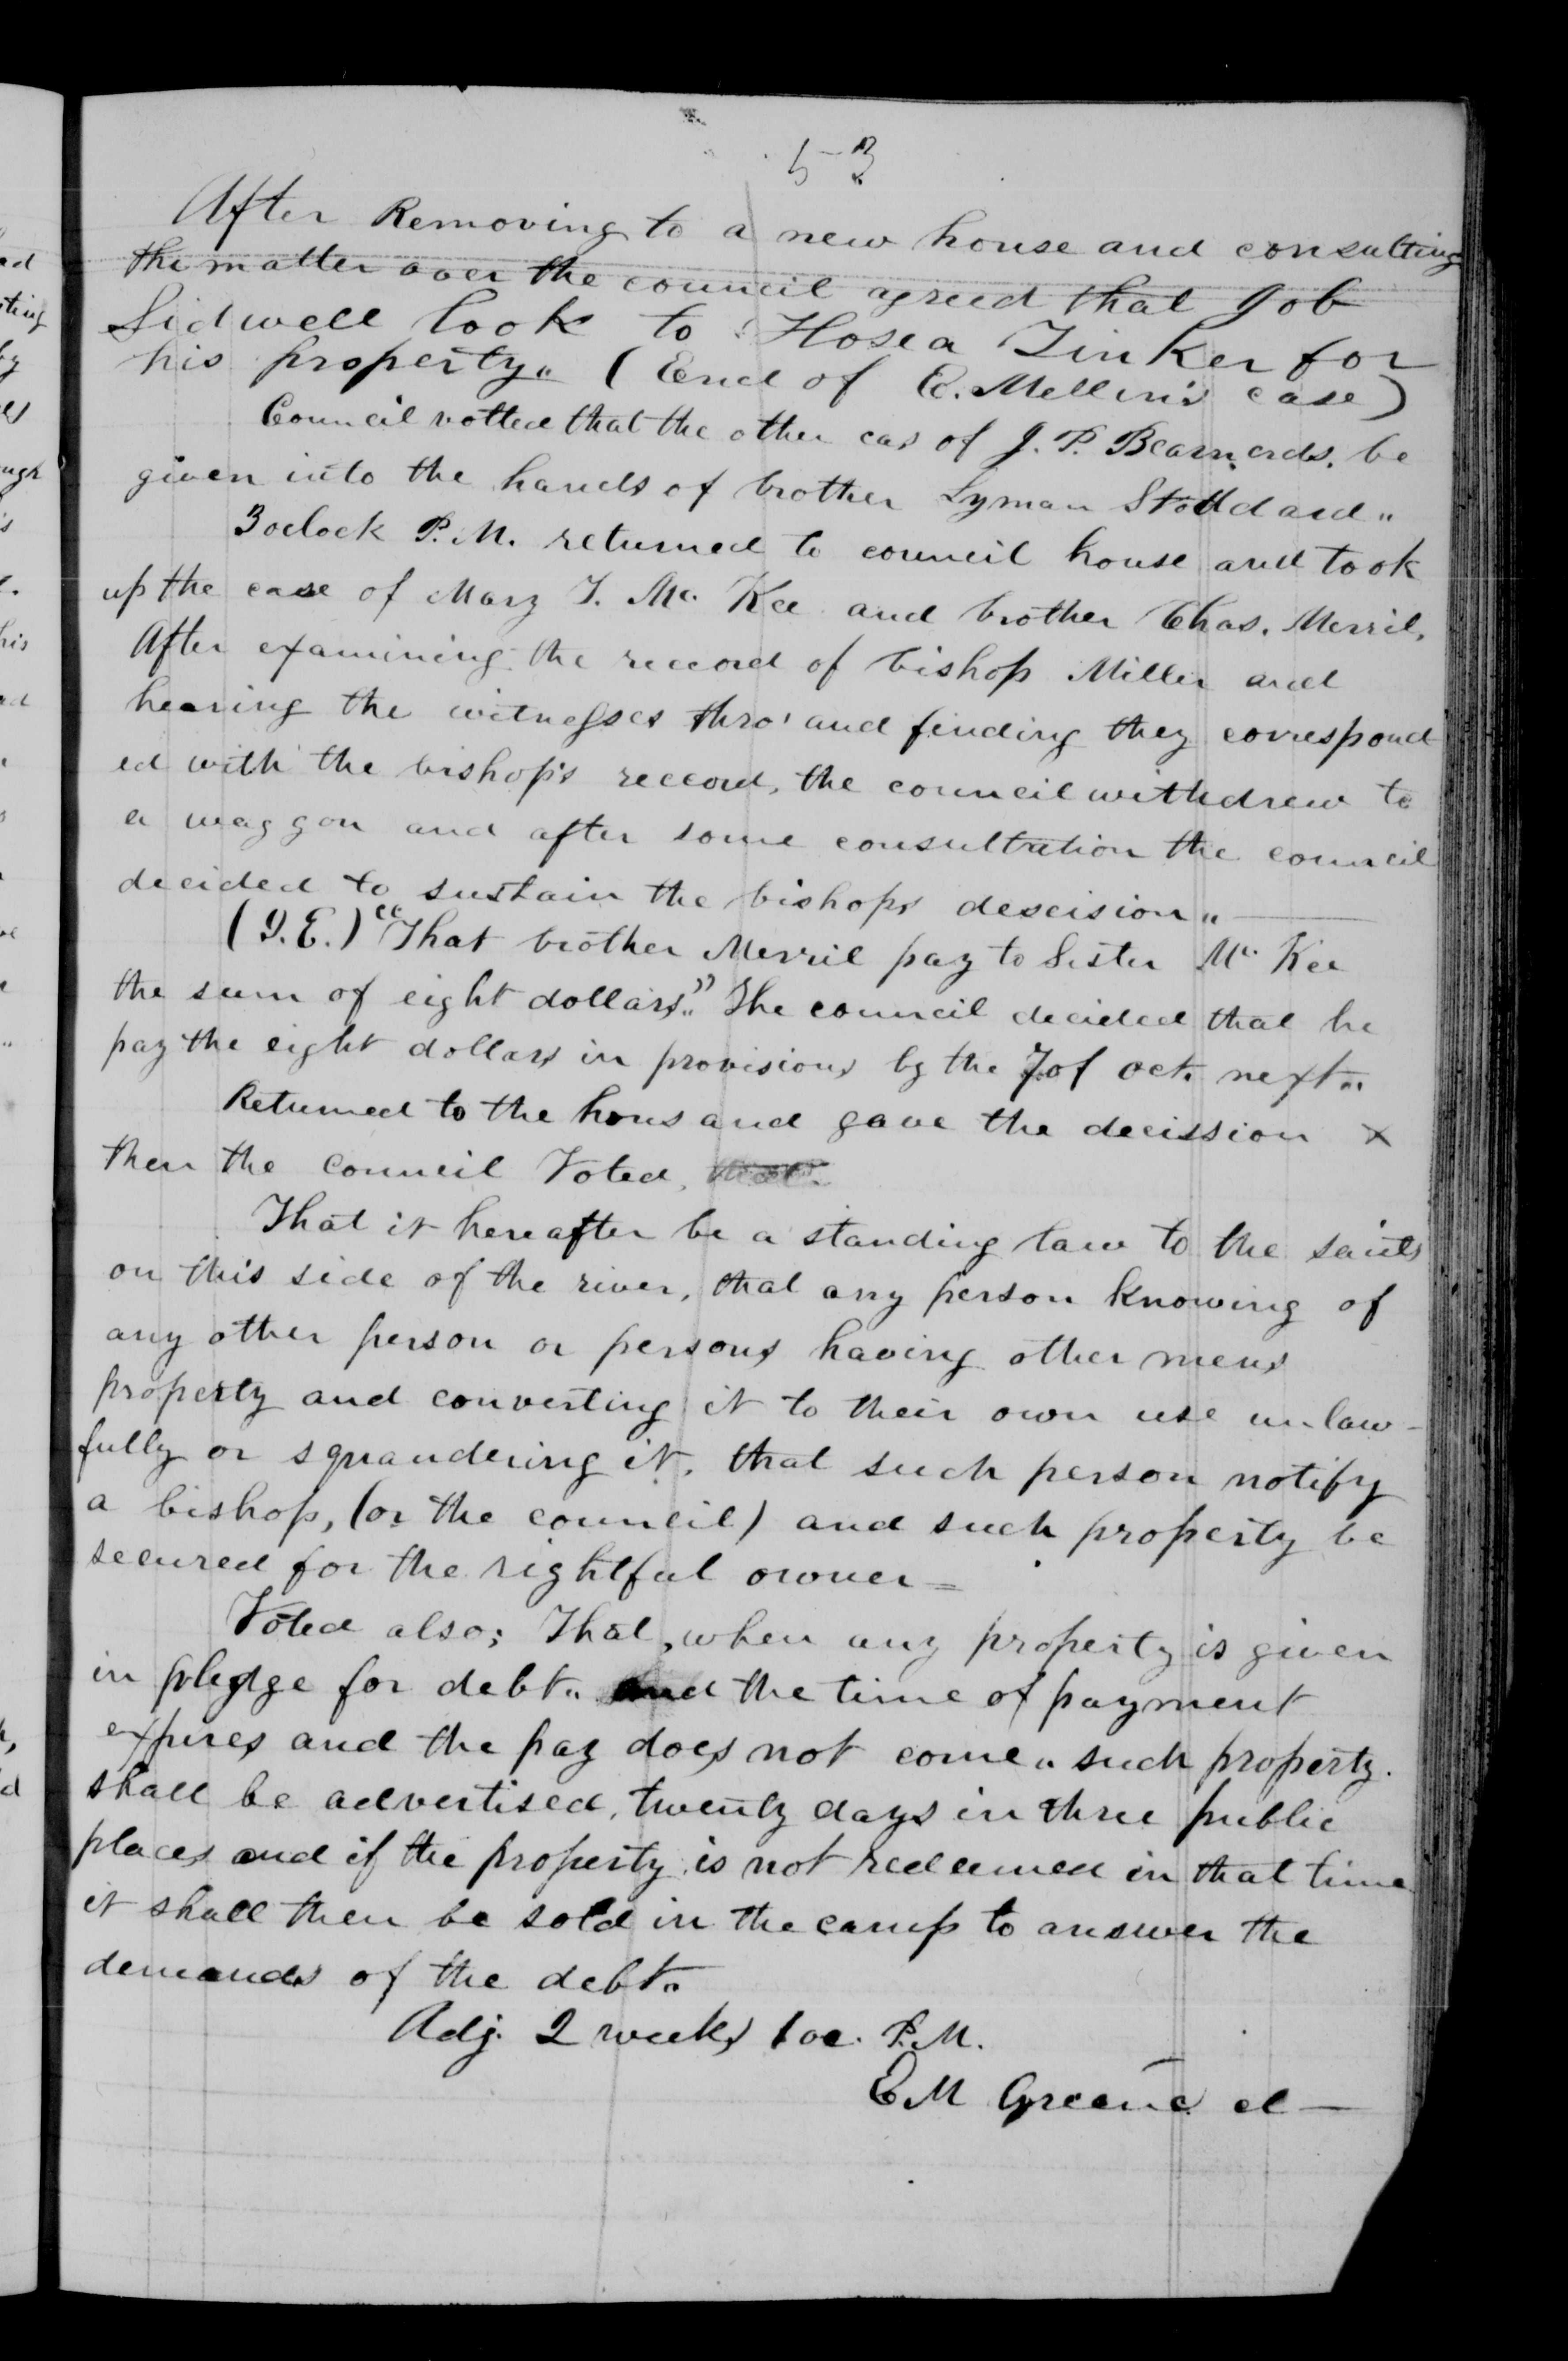 53
After Removing to a new house and consulting
the matter over the council agreed that Job
Sidwell look to Hosea Tinker for
his property" (End of E. Mellen's case)
Council votted that the other cas of J. P. Bearnerds. be
given into the hands of brother Lyman Stoddard"
3oclock P.M. returned to council house and took
up the case of Mary T. Mc. Kee and brother Chas. Merril,
After examining the reccord of bishop Miller and
hearing the witnesses thro' and finding they correspond
ed with the bishop's reccord, the council withdrew to
a waggon and after some consultation the council
decided to sustain the bishops descision"
(I.E.) "That brother Merril pay to Sister Mc. Kee
the sum of eight dollars." The council decided that he
pay the eight dollars in provisions by the 7 of oct. next"
Returned to the hous and gave the decission x
then the council Voted,
That it hereafter be a standing law to the saints
on this side of the river, that any person knowing of
any other person or persons having other mens
property and converting it to their own use unlaw-
fully or squandering it, that such person notify
a bishop, (or the council) and such property be
secured for the rightful owner=
Voted also; That, when any property is given
in pledge for debt" and the time of payment
expires and the pay does not come" such property.
shall be advertised, twenty days in three public
places and if the property is not redeemed in that time
it shall then be sold in the camp to answer the
demands of the debt"
Adj. 2 weeks 1 oc. P.M.
E M Greene cl—